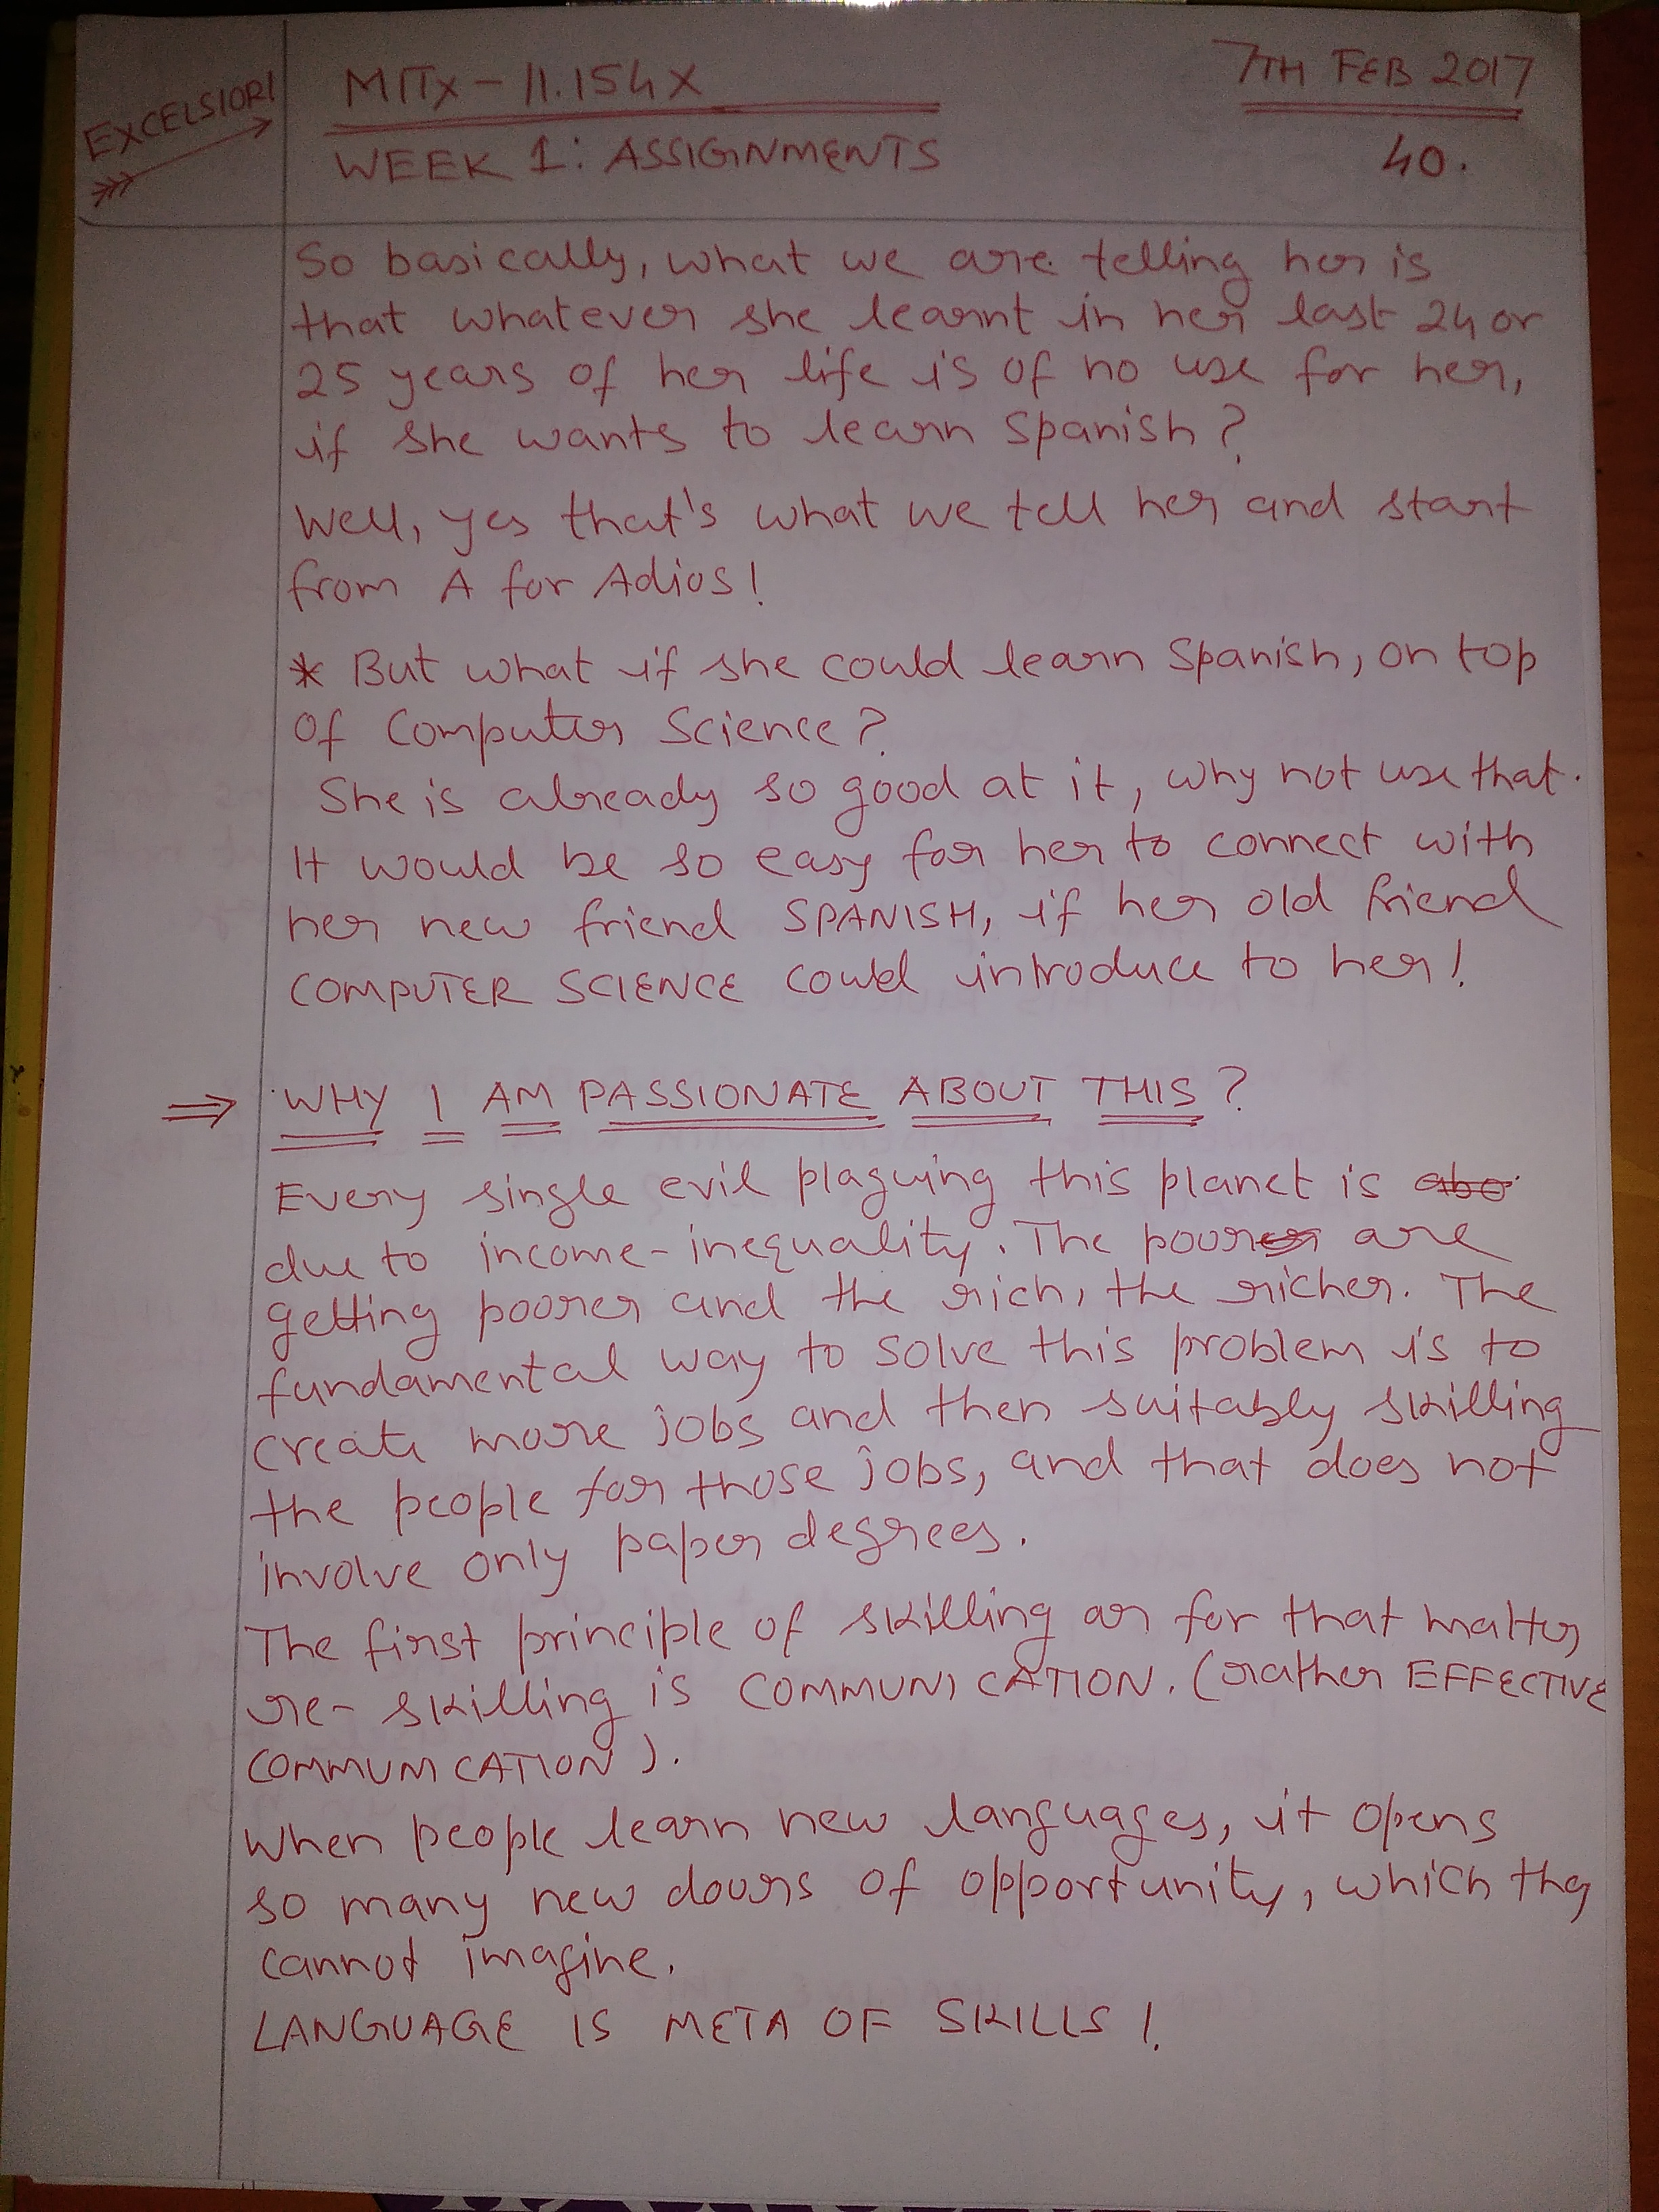 EXCELSIOR!
MITx - 11.154x
7TH FEB 2017
WEEK 1: ASSIGNMENTS
40.
So basically, what we are telling her is
that whatever she learnt in her last 24 or
25 years of her life is of no use for her,
if she wants to learn Spanish?
Well, yes that's what we tell her and start
from A for Adios!
* But what if she could learn Spanish, on top
of Computer Science?
She is already so good at it, why not use that.
It would be so easy for her to connect with
her new friend SPANISH, if her old friend
COMPUTER SCIENCE could introduce to her!
⇒ WHY I AM PASSIONATE ABOUT THIS?
Every single evil plaguing this planet is abo
due to income-inequality. The poorer are
getting poorer and the rich, the richer. The
fundamental way to solve this problem is to
create more jobs and then suitably skilling
the people for those jobs, and that does not
involve only paper degrees.
The first principle of skilling or for that matter
re-skilling is COMMUNICATION. (rather EFFECTIVE
COMMUNICATION).
When people learn new languages, it opens
so many new doors of opportunity, which they
cannot imagine.
LANGUAGE IS META OF SKILLS!